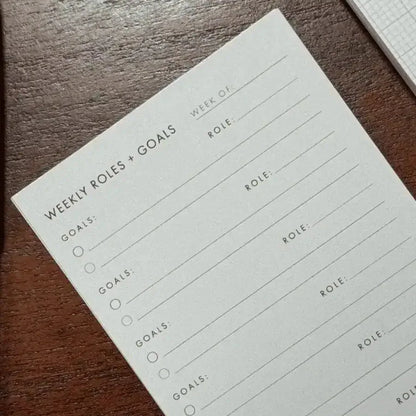 WEEKLY ROLES + GOALS WEEK OF:
GOALS: ROLE:
GOALS: ROLE:
GOALS: ROLE:
GOALS: ROLE:
ROLE:
ROLE: